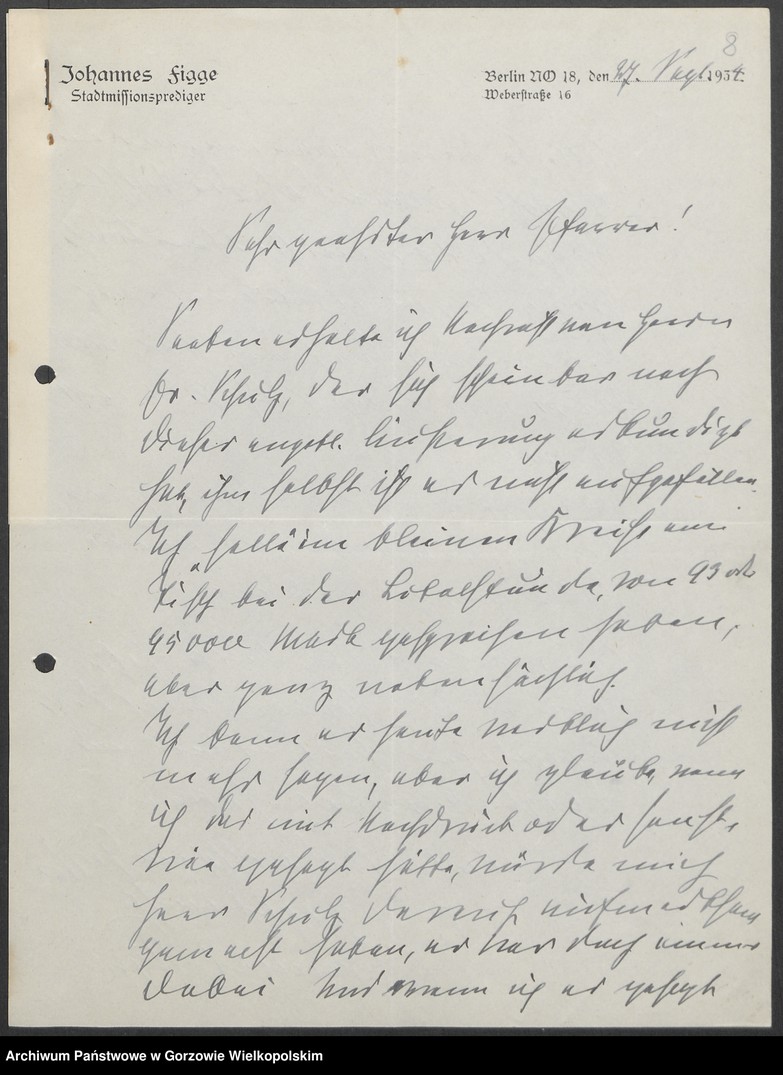 8
Johannes Figge
Stadtmissionsprediger
Berlin NO 18, den 27. Sept. 1934.
Weberstraße 16
Sehr geehrter Herr Pfarrer!
Soeben erhalte ich Nachricht von Herrn
Dr. Schulz, der sich scheinbar nach
dieser angebl. Äußerung erkundigt
hat, ihm selbst ist es nicht aufgefallen.
Ich soll im kleinen Kreise am
Tisch bei der Bibelstunde, von 93 oder
95000 Mark gesprochen haben,
aber ganz nebensächlich.
Ich kann es heute wirklich nicht
mehr sagen, aber ich glaube, wenn
ich das mit Nachdruck oder sonst
wie gesagt hätte, würde mich
Herr Schulz darauf aufmerksam
gemacht haben, er war doch immer
dabei und wenn ich es gesagt
Archiwum Państwowe w Gorzowie Wielkopolskim